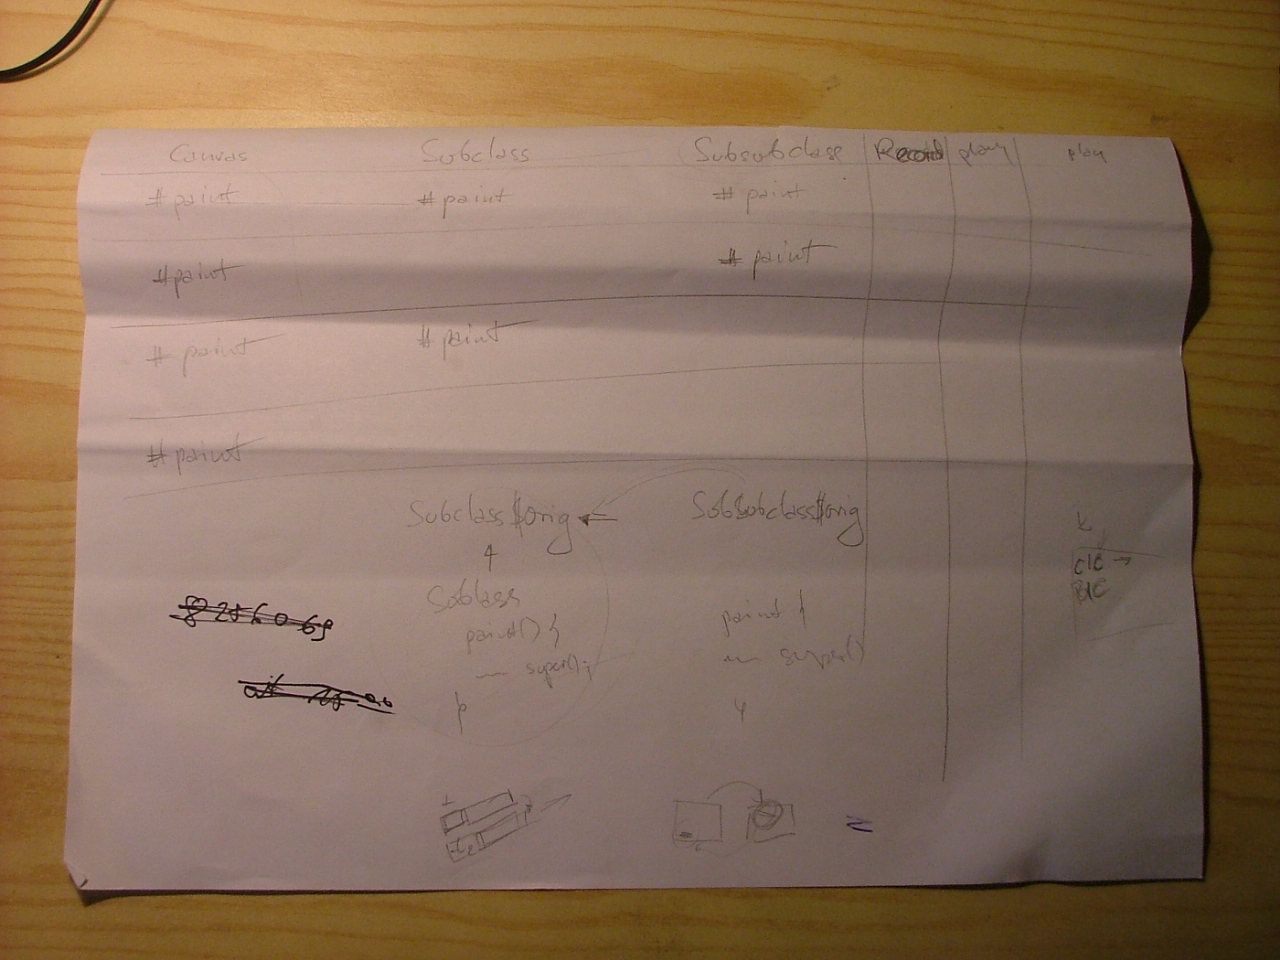 Canvas Subclass Subsubclass Record play play
# paint # paint # paint
# paint # paint
# paint # paint
# paint
Subclass$orig SubSubclass$orig
Subclass
paint() {
super();
}
paint {
super()
}
C/C →
B/C